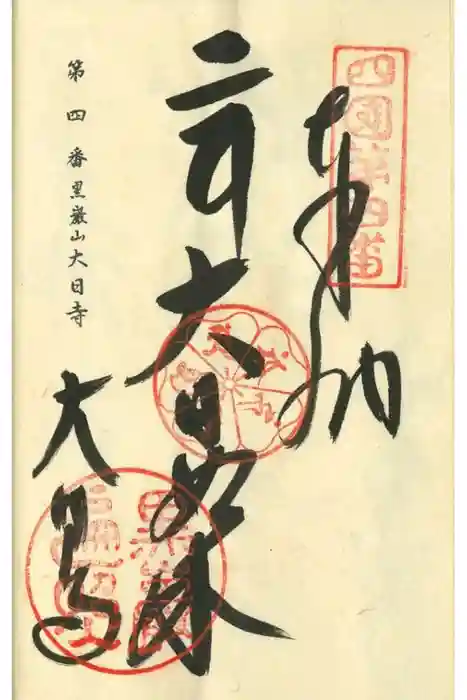 四国第四番
奉納
大日如来
大日寺
第四番黒巌山大日寺